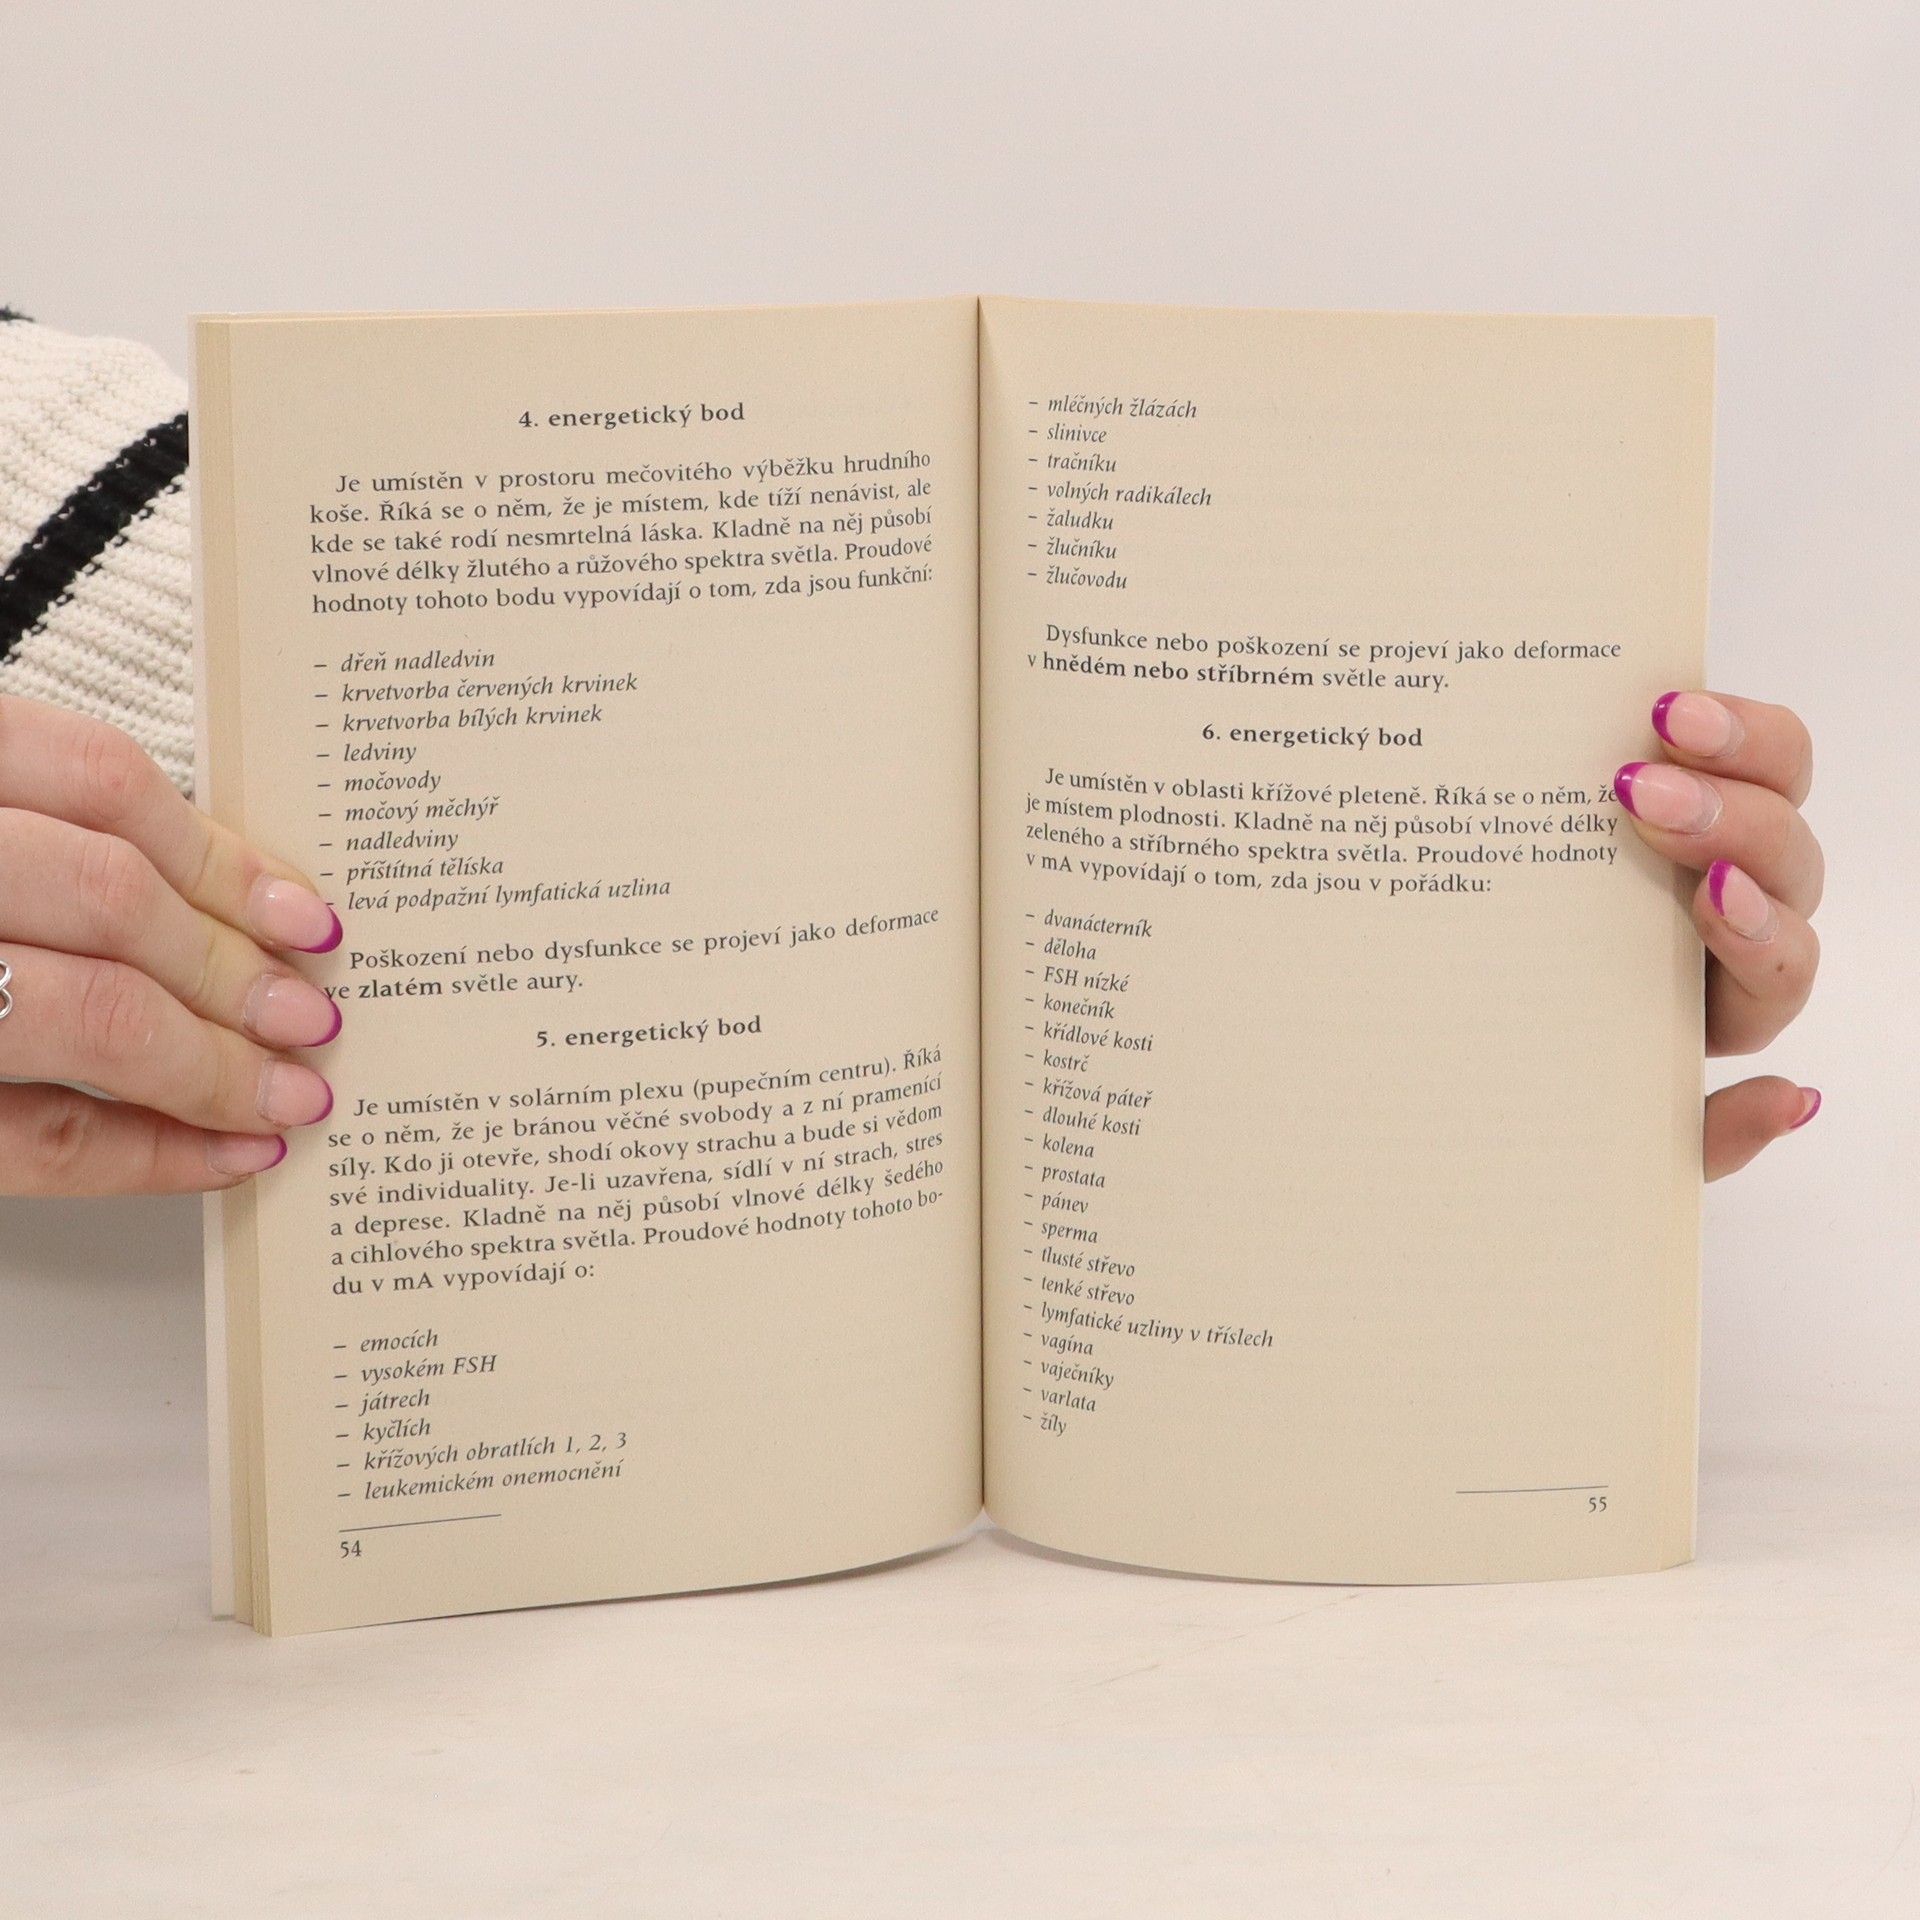 4. energetický bod
Je umístěn v prostoru mečovitého výběžku hrudního
koše. Říká se o něm, že je místem, kde tíží nenávist, ale
kde se také rodí nesmrtelná láska. Kladně na něj působí
vlnové délky žlutého a růžového spektra světla. Proudové
hodnoty tohoto bodu vypovídají o tom, zda jsou funkční:
– dřeň nadledvin
– krvetvorba červených krvinek
– krvetvorba bílých krvinek
– ledviny
– močovody
– močový měchýř
– nadledviny
– příštítná tělíska
– levá podpažní lymfatická uzlina
Poškození nebo dysfunkce se projeví jako deformace
ve zlatém světle aury.
5. energetický bod
Je umístěn v solárním plexu (pupečním centru). Říká
se o něm, že je bránou věčné svobody a z ní pramenící
síly. Kdo ji otevře, shodí okovy strachu a bude si vědom
své individuality. Je-li uzavřena, sídlí v ní strach, stres
a deprese. Kladně na něj působí vlnové délky šedého
a cihlového spektra světla. Proudové hodnoty tohoto bo-
du v mA vypovídají o:
– emocích
– vysokém FSH
– játrech
– kyčlích
– křížových obratlích 1, 2, 3
– leukemickém onemocnění
54
– mléčných žlázách
– slinivce
– tračníku
– volných radikálech
– žaludku
– žlučníku
– žlučovodu
Dysfunkce nebo poškození se projeví jako deformace
v hnědém nebo stříbrném světle aury.
6. energetický bod
Je umístěn v oblasti křížové pleteně. Říká se o něm, že
je místem plodnosti. Kladně na něj působí vlnové délky
zeleného a stříbrného spektra světla. Proudové hodnoty
v mA vypovídají o tom, zda jsou v pořádku:
– dvanácterník
– děloha
– FSH nízké
– konečník
– křídlové kosti
– kostrč
– křížová páteř
– dlouhé kosti
– kolena
– prostata
– pánev
– sperma
– tlusté střevo
– tenké střevo
– lymfatické uzliny v tříslech
– vagína
– vaječníky
– varlata
– žíly
55